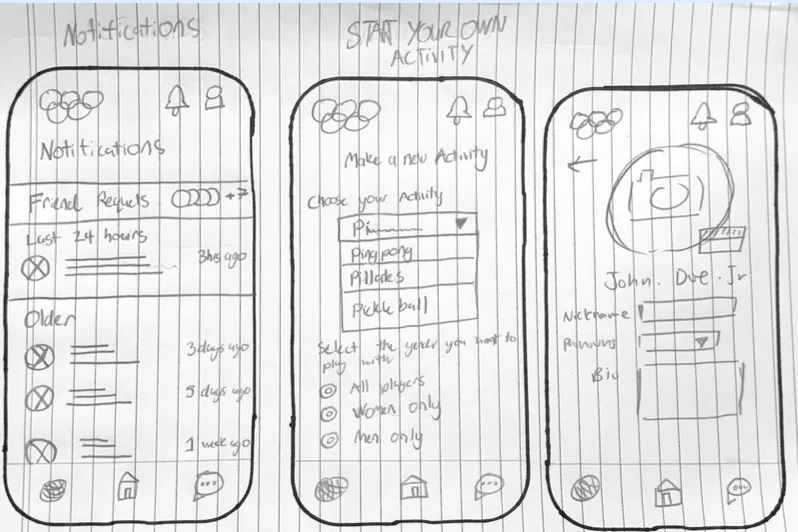 Notifications
START YOUR OWN
ACTIVITY
Notifications
Friend Requets +7
Last 24 hours
3hrs ago
Older
3 days ago
5 days ago
1 week ago
Make a new Activity
Choose your Activity
Pi
Pingpong
Pillates
Pickleball
Select the gender you want to
play with
All players
Women only
Men only
John. Doe. Jr
Nickname
Pronouns
Bio